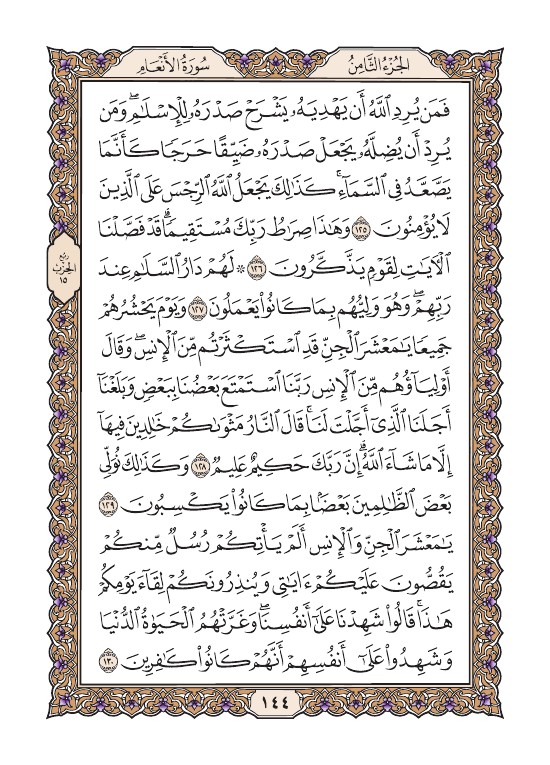 سُورَةُ الأَنْعَامِ
الجُزْءُ الثَّامِنُ
فَمَن يُرِدِ ٱللَّهُ أَن يَهْدِيَهُۥ يَشْرَحْ صَدْرَهُۥ لِلْإِسْلَٰمِۖ وَمَن
يُرِدْ أَن يُضِلَّهُۥ يَجْعَلْ صَدْرَهُۥ ضَيِّقًا حَرَجٗا كَأَنَّمَا
يَصَّعَّدُ فِي ٱلسَّمَآءِۚ كَذَٰلِكَ يَجْعَلُ ٱللَّهُ ٱلرِّجْسَ عَلَى ٱلَّذِينَ
لَا يُؤْمِنُونَ ١٢٥ وَهَٰذَا صِرَٰطُ رَبِّكَ مُسْتَقِيمٗاۗ قَدْ فَصَّلْنَا
ٱلْأٓيَٰتِ لِقَوْمٖ يَذَّكَّرُونَ ١٢٦ ۞ لَهُمْ دَارُ ٱلسَّلَٰمِ عِندَ
رَبِّهِمْۖ وَهُوَ وَلِيُّهُم بِمَا كَانُوا۟ يَعْمَلُونَ ١٢٧ وَيَوْمَ يَحْشُرُهُمْ
جَمِيعٗا يَٰمَعْشَرَ ٱلْجِنِّ قَدِ ٱسْتَكْثَرْتُم مِّنَ ٱلْإِنسِۖ وَقَالَ
أَوْلِيَآؤُهُم مِّنَ ٱلْإِنسِ رَبَّنَا ٱسْتَمْتَعَ بَعْضُنَا بِبَعْضٖ وَبَلَغْنَآ
أَجَلَنَا ٱلَّذِيٓ أَجَّلْتَ لَنَاۚ قَالَ ٱلنَّارُ مَثْوَىٰكُمْ خَٰلِدِينَ فِيهَآ
إِلَّا مَا شَآءَ ٱللَّهُۗ إِنَّ رَبَّكَ حَكِيمٌ عَلِيمٞ ١٢٨ وَكَذَٰلِكَ نُوَلِّي
بَعْضَ ٱلظَّٰلِمِينَ بَعْضَۢا بِمَا كَانُوا۟ يَكْسِبُونَ ١٢٩
يَٰمَعْشَرَ ٱلْجِنِّ وَٱلْإِنسِ أَلَمْ يَأْتِكُمْ رُسُلٞ مِّنكُمْ
يَقُصُّونَ عَلَيْكُمْ ءَايَٰتِي وَيُنذِرُونَكُمْ لِقَآءَ يَوْمِكُمْ
هَٰذَاۚ قَالُوا۟ شَهِدْنَا عَلَىٰٓ أَنفُسِنَاۖ وَغَرَّتْهُمُ ٱلْحَيَوٰةُ ٱلدُّنْيَا
وَشَهِدُوا۟ عَلَىٰٓ أَنفُسِهِمْ أَنَّهُمْ كَانُوا۟ كَٰفِرِينَ ١٣٠
ربع
الحزب
١٥
١٤٤